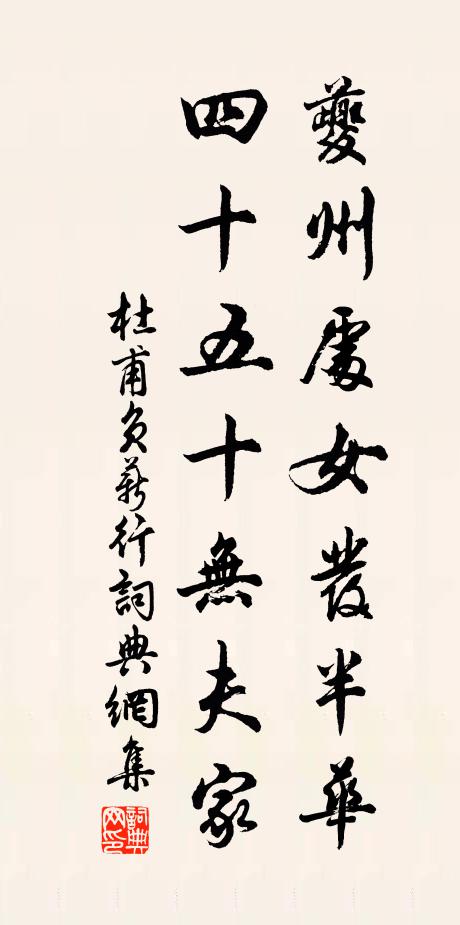 夔州處女發半華
四十五十無夫家
杜甫負薪行詞典網集
詞典網印